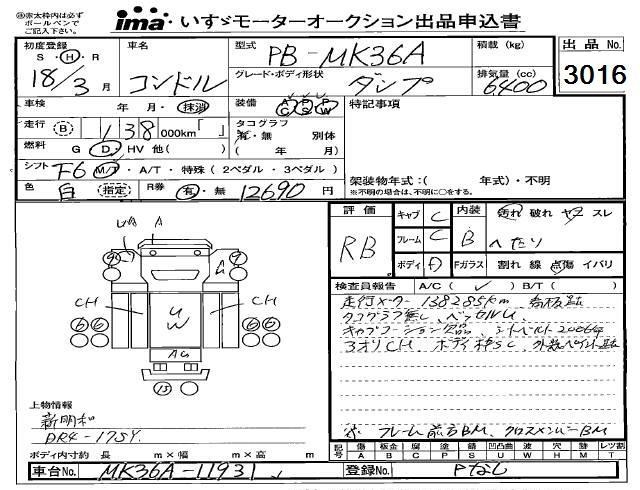 ㊟赤太枠内は必ず
ボールペンで
ご記入下さい。
ima いすゞモーターオークション出品申込書
初度登録
S・H・R
18/3月
車名
コンドル
型式 PB-MK36A
グレード・ボディ形状
ダンプ
積載 (kg)
排気量 (cc)
6400
出品No.
3016
車検 年・月・抹消
装備 A/C P/S P/W
特記事項
走行 B 138 000km「 」
タコグラフ
有・無 別体
( 年 月)
燃料 G D HV 他( )
シフト F6 M/T・A/T・特殊(2ペダル・3ペダル)
色 白 指定 R券 有・無 12690円
架装物年式:( 年式)・不明
※不明の場合は、不明に○をする。
評価 RB
キャブ C
フレーム C
ボディ D
内装 B
Fガラス
汚れ 破れ ヤケ スレ
へたり
割れ 線 点傷 イバリ
検査員報告 A/C( ✓ ) B/T( )
走行メーター 138285km
タコグラフ無し、ベッセルU、
3オリCH ボディ枠SC
フレーム前方BM、クロスメンバーBM
UA A
A
9 9
CH CH
U
W
6 6 6 6
AU
13
上物情報
新明和
DR4-175Y
ボディ内寸約 長 m×幅 m×高 m
記号 傷 A 板金 B 腐 C 塗 P 錆 S 凹凸曲 U 波 W 穴 H 跡 M レツ割 T
車台No. MK36A-11931
登録No. Pなし